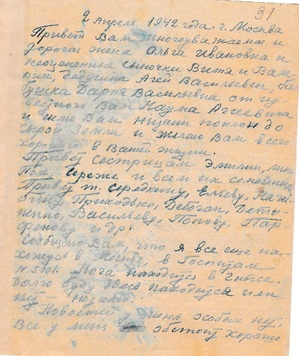 31
2 Апрель 1942 года. г. Москва
Привет Вам многоуважаемая и
дорогая жена Ольга Ивановна и
неоцененные сыночки Витя и Вале
рий, дедушка Агей Васильевич, ба
бушка Дарья Васильевна от из
вестного Вам Наума Агеевича
и шлю Вам Низкий поклон до
сырой Земли и желаю Вам всего
хорошего в Вашей жизни.
Привет сестрицам Эмилии,
Сереже и всем их семействам
Привет т. Середкину, Ельеву,
Приходько,
Васильеву, Попову, Пар
фенову и др.
Сообщаю Вам, что я все еще на
хожусь в Москве, в Госпитале
№ 5001. Нога находится в Гипсе.
Долго буду здесь находится или
нет
Новостей у меня особых нет.
Все у меня обстоит хорошо